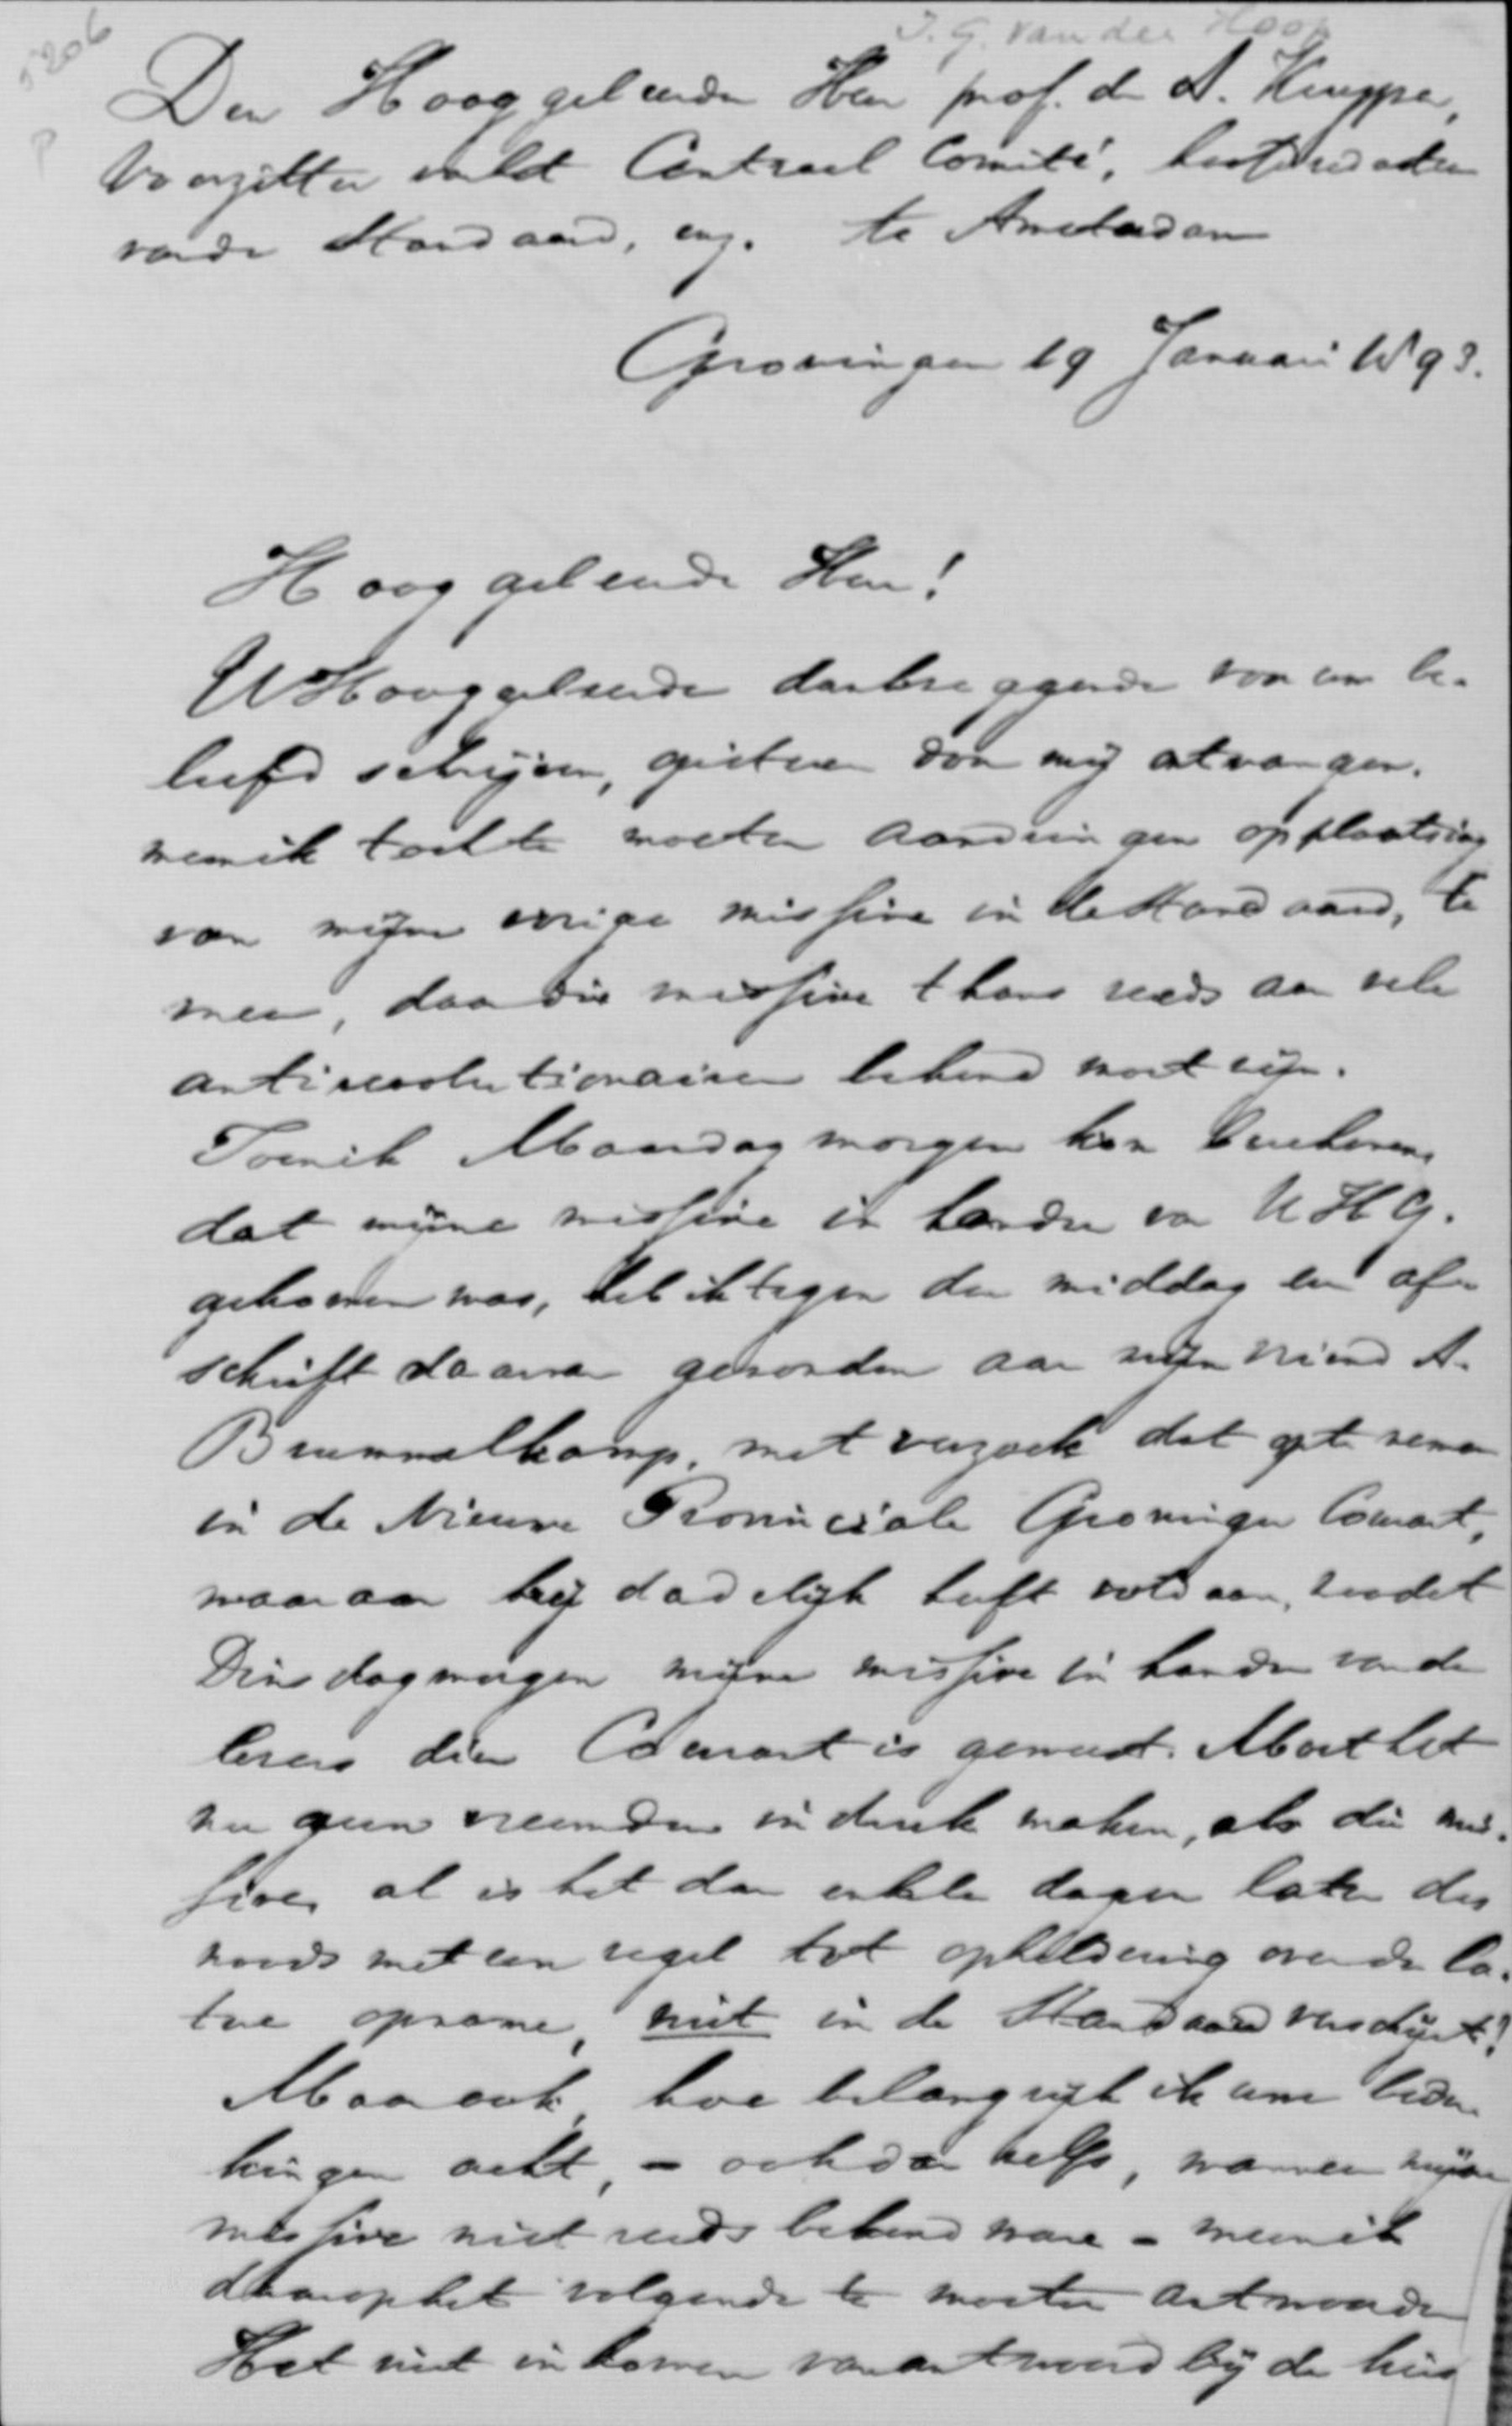 5206
J. G. van der Hoop
P
Den Hooggeleerden Heer prof. dr A. Kuyper,
Voorzitter van het Centraal Comité, hoofdredacteur
van de Standaard, enz. te Amsterdam
Groningen 19 Januari 1893.
Hooggeleerde Heer!
UHooggeleerde dankzeggende voor uw be-
leefd schrijven, gisteren door mij ontvangen.
meen ik toch te moeten aandringen op plaatsing
van mijne vorige missive in de Standaard, te
meer, daar die missive thans reeds aan vele
antirevolutionairen bekend moet zijn.
Toen ik Maandagmorgen kon berekenen,
dat mijne missive in handen van UHG.
gekomen was, heb ik tegen den middag een af-
schrift daarvan gezonden aan mijn vriend A.
Brummelkamp, met verzoek dat op te nemen
in de Nieuwe Provinciale Groninger Courant,
waaraan hij dadelijk heeft voldaan, zoodat
Dinsdagmorgen mijne missive in handen van de
lezers dier Courant is geweest. Moet het
nu geen vreemden indruk maken, als die mis-
sive, al is het dan enkele dagen later des
noods met een regel tot opheldering over de la-
tere opname, niet in de Standaard verschijnt?
Maar ook, hoe belangrijk ik uwe beden-
kingen acht, - ook dan zelfs, wanneer mijne
missive niet reeds bekend ware - meen ik
daarop het volgende te moeten antwoorden
Het niet inkomen van antwoord bij de kies